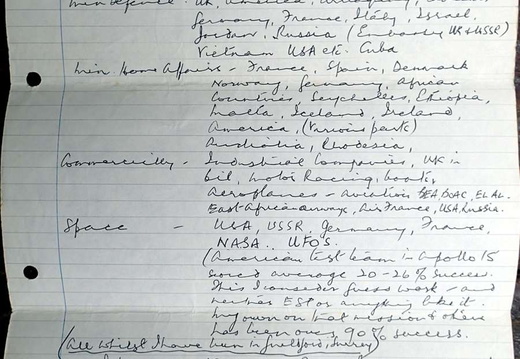 Min Defence - UK, America,
Germany, France, Italy, Israel,
Jordan, Russia (Embassy UK & USSR)
Vietnam USA etc. Cuba
Min. Home Affairs - France, Spain, Denmark
Norway, Germany, African
Countries, Seychelles, Ethiopia,
Malta, Iceland, Ireland,
America, (Various parts)
Australia, Rhodesia,
Commercially - Industrial Companies, UK in
oil, motor Racing, boats,
Aeroplanes - aviation BEA, BOAC, EL AL.
East African airways, Air France, USA, Russia.
Space - USA, USSR, Germany, France,
NASA. UFO's.
(American test team in Apollo 15
scored average 20-26% success.
This I consider guess work - and
neither ESP or anything like it.
My own on that mission & others
has been over 90% success.
(All whilst I have been in Guildford, Surrey)